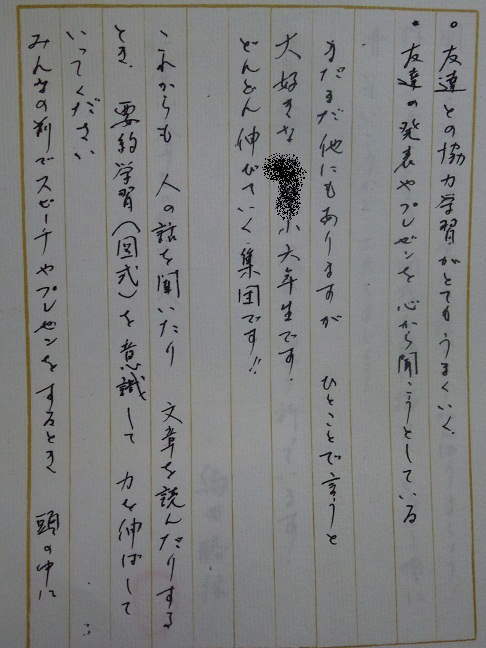 。友達との協力学習がとてもうまくいく。
・友達の発表やプレゼンを心から聞こうとしている
まだまだ他にもありますが ひとことで言うと
大好きな 小六年生です。
どんどん伸びていく集団です!!
これからも 人の話を聞いたり 文章を読んだりする
とき、要約学習(図式)を意識して 力を伸ばして
いってください
みんなの前でスピーチやプレゼンをするとき 頭の中に